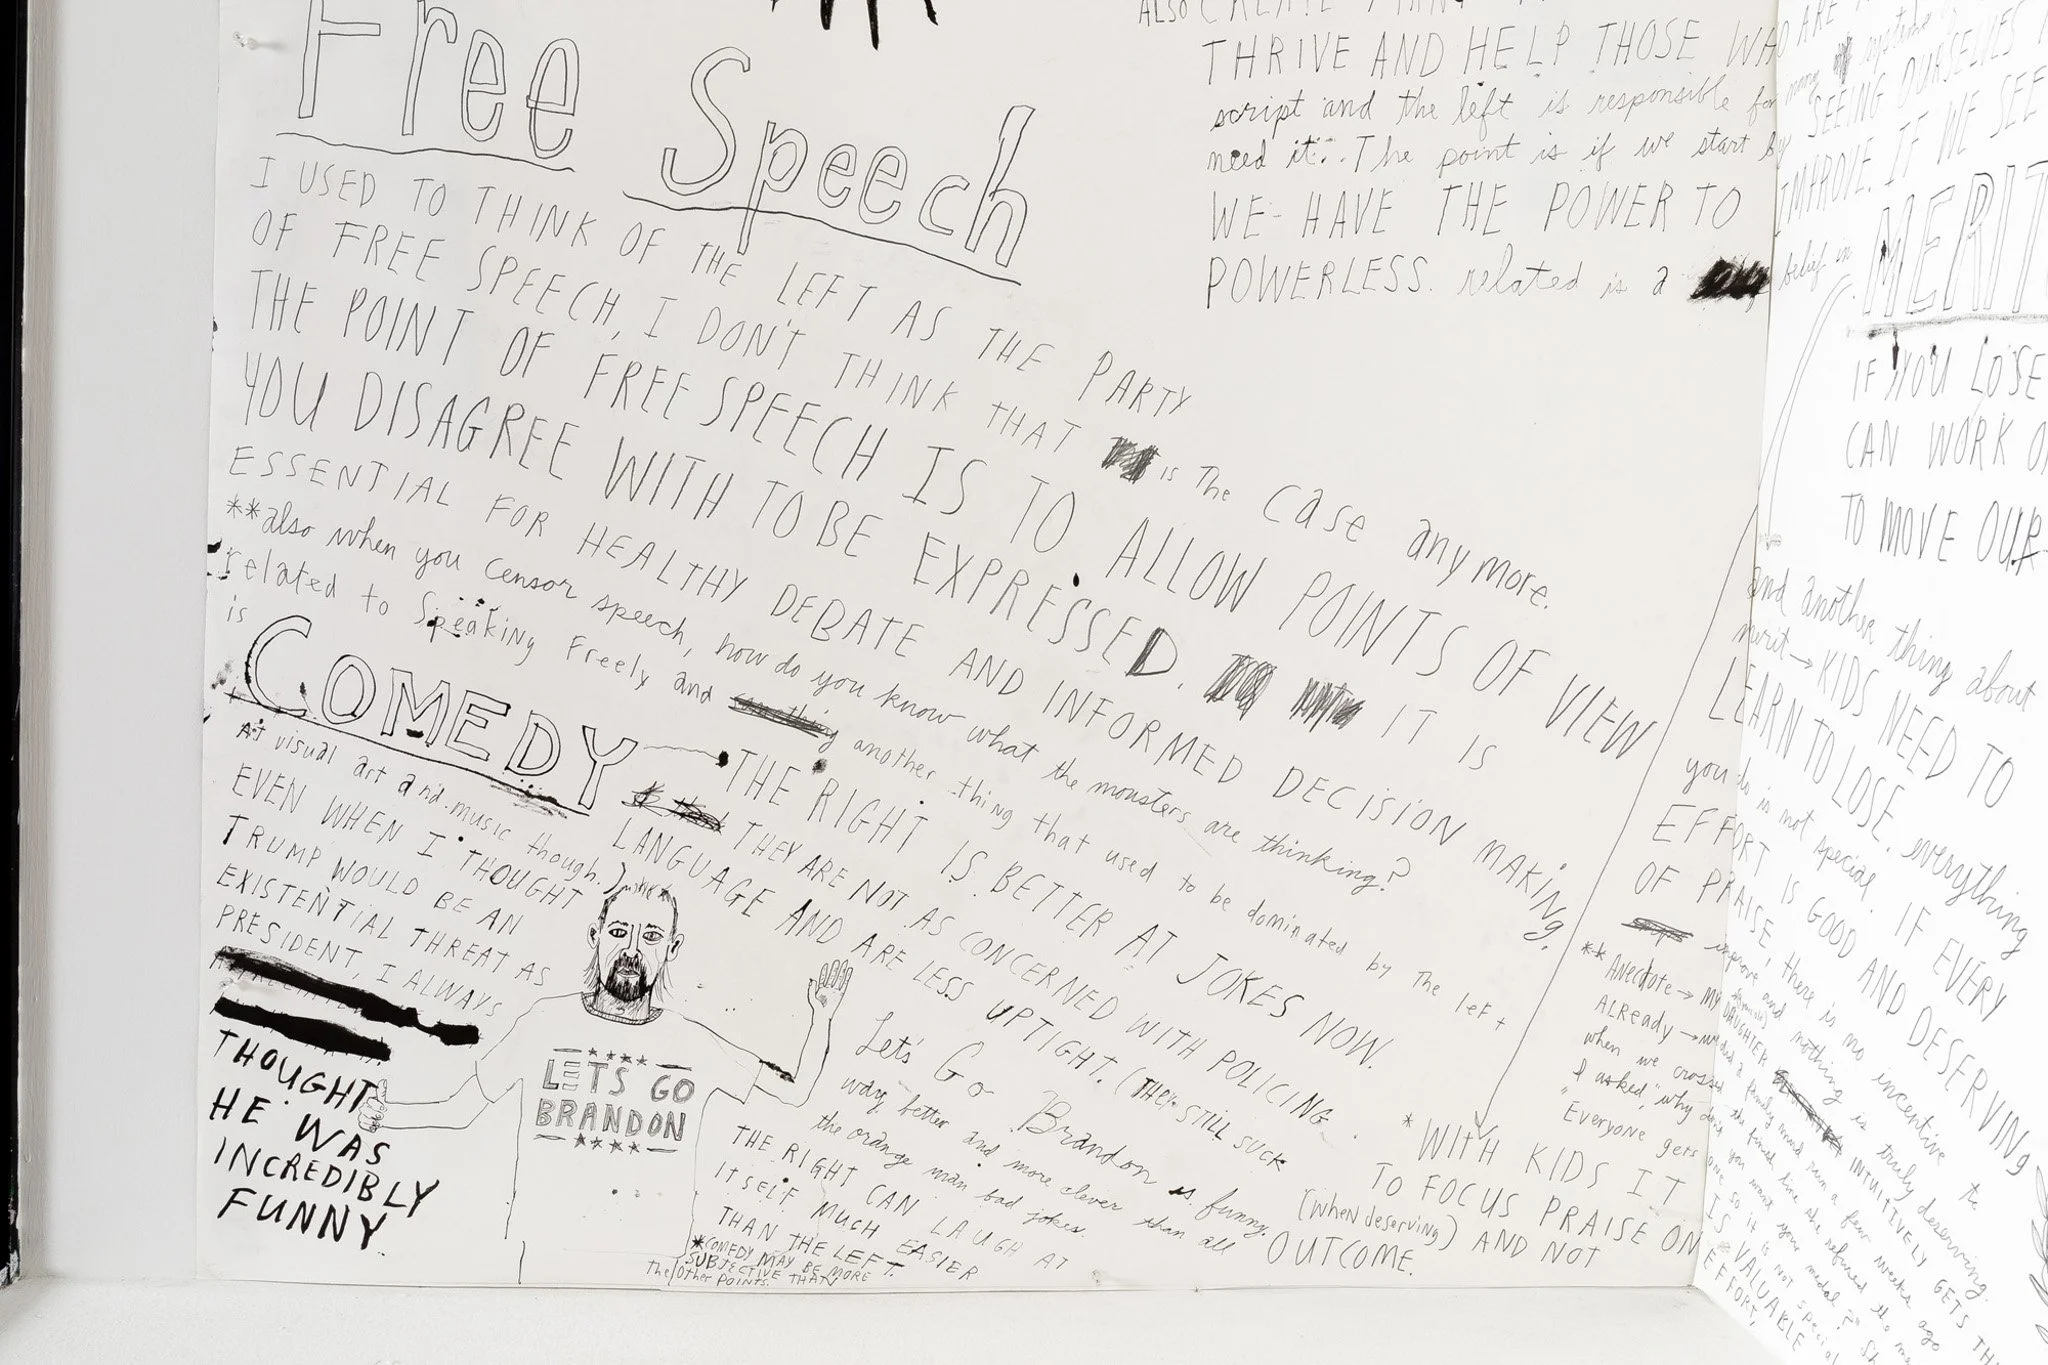 Free Speech
I USED TO THINK OF THE LEFT AS THE PARTY
OF FREE SPEECH, I DON'T THINK THAT is The case anymore.
THE POINT OF FREE SPEECH IS TO ALLOW POINTS OF VIEW
YOU DISAGREE WITH TO BE EXPRESSED. IT IS
ESSENTIAL FOR HEALTHY DEBATE AND INFORMED DECISION MAKING.
**also when you censor speech, how do you know what the monsters are thinking?
related to Speaking Freely and another thing that used to be dominated by The left
is
COMEDY
THE RIGHT IS BETTER AT JOKES NOW.
THEY ARE NOT AS CONCERNED WITH POLICING
LANGUAGE AND ARE LESS UPTIGHT. (THEY STILL SUCK
AT visual art and music though.)
EVEN WHEN I THOUGHT
TRUMP WOULD BE AN
EXISTENTIAL THREAT AS
PRESIDENT, I ALWAYS
THOUGHT
HE WAS
INCREDIBLY
FUNNY.
LETS GO
BRANDON
Let's Go Brandon is funny.
way better and more clever than all
the orange man bad jokes.
THE RIGHT CAN LAUGH AT
ITSELF MUCH EASIER
THAN THE LEFT.
*COMEDY MAY BE MORE
SUBJECTIVE THAN
The Other POINTS.
ALSO CREATE
THRIVE AND HELP THOSE WHO ARE
script and the left is responsible for many systems
need it... The point is if we start by SEEING OURSELVES
WE HAVE THE POWER TO IMPROVE. IF WE SEE
POWERLESS. related is a belief in
MERIT
IF YOU LOSE
CAN WORK
TO MOVE OUR
and another thing about
merit → KIDS NEED TO
LEARN TO LOSE. everything
you do is not special. IF EVERY
EFFORT IS GOOD AND DESERVING
OF PRAISE, there is no incentive to
improve and nothing is truly deserving.
** Anecdote → MY DAUGHTER INTUITIVELY GETS THIS
ALREADY → we did a family mud run a few weeks ago
when we crossed the finish line she refused the
I asked, "why don't you want your medal?"
"Everyone gets one so it is not special
* WITH KIDS IT IS VALUABLE
TO FOCUS PRAISE ON EFFORT,
(when deserving) AND NOT
OUTCOME.